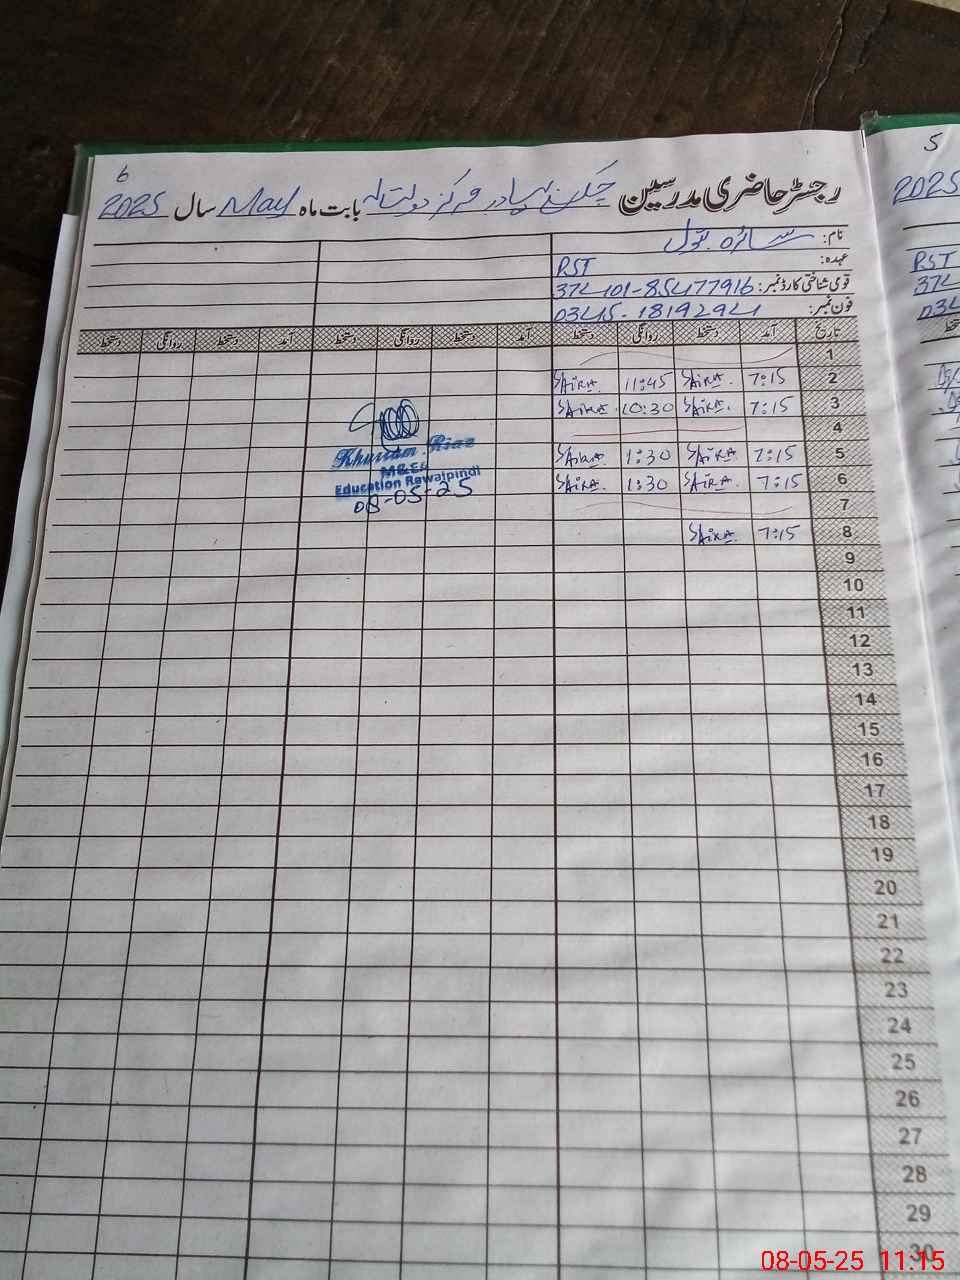 6
رجسٹر حاضری مدرسین چک بیلی بہادر مرکز دولتالہ بابت ماہ May سال 2025
نام: سائرہ بتول
عہدہ: PST
قومی شناختی کارڈ نمبر: 37401-85477916
فون نمبر: 0345-1819294
تاریخ آمد دستخط روانگی دستخط آمد دستخط روانگی دستخط آمد دستخط روانگی دستخط
1
2 7:15 SAiRA. 11:45 SAiRA.
3 7:15 SAiRA. 10:30 SAiRA.
4
5 7:15 SAiRA. 1:30 SAiRA.
6 7:15 SAiRA. 1:30 SAiRA.
7
8 7:15 SAiRA.
9
10
11
12
13
14
15
16
17
18
19
20
21
22
23
24
25
26
27
28
29
30
Khurram Riaz
M&EA
Education Rawalpindi
08-05-25
5
2025
PST
374
034
08-05-25 11:15